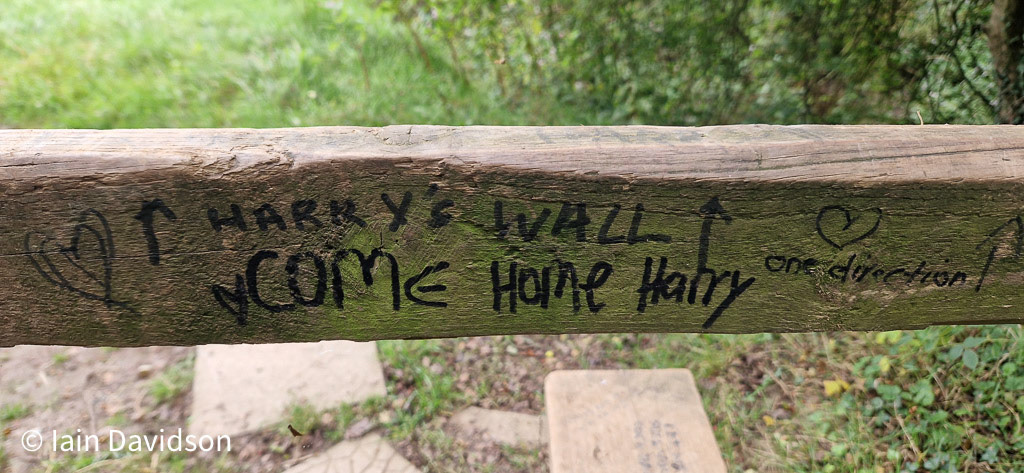 HARRY'S WALL
COME Home Harry
one direction
© Iain Davidson